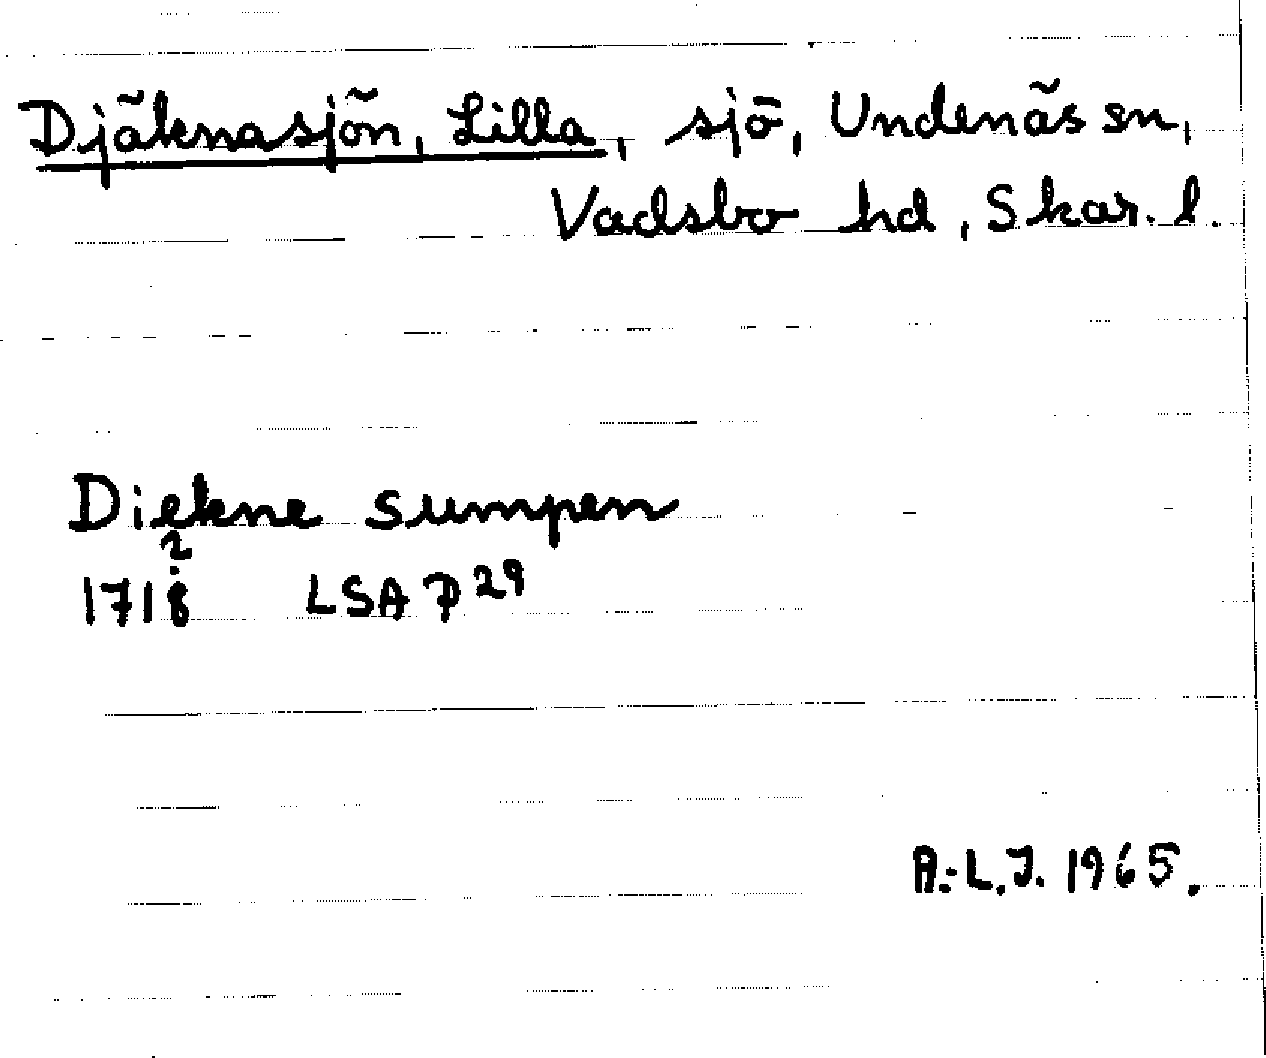 Djäknasjön, Lilla, sjö, Undenäs sn,
Vadsbo hd, Skar. l.
Diękne sumpen
1718 LSA P 29
A.-L.J. 1965.